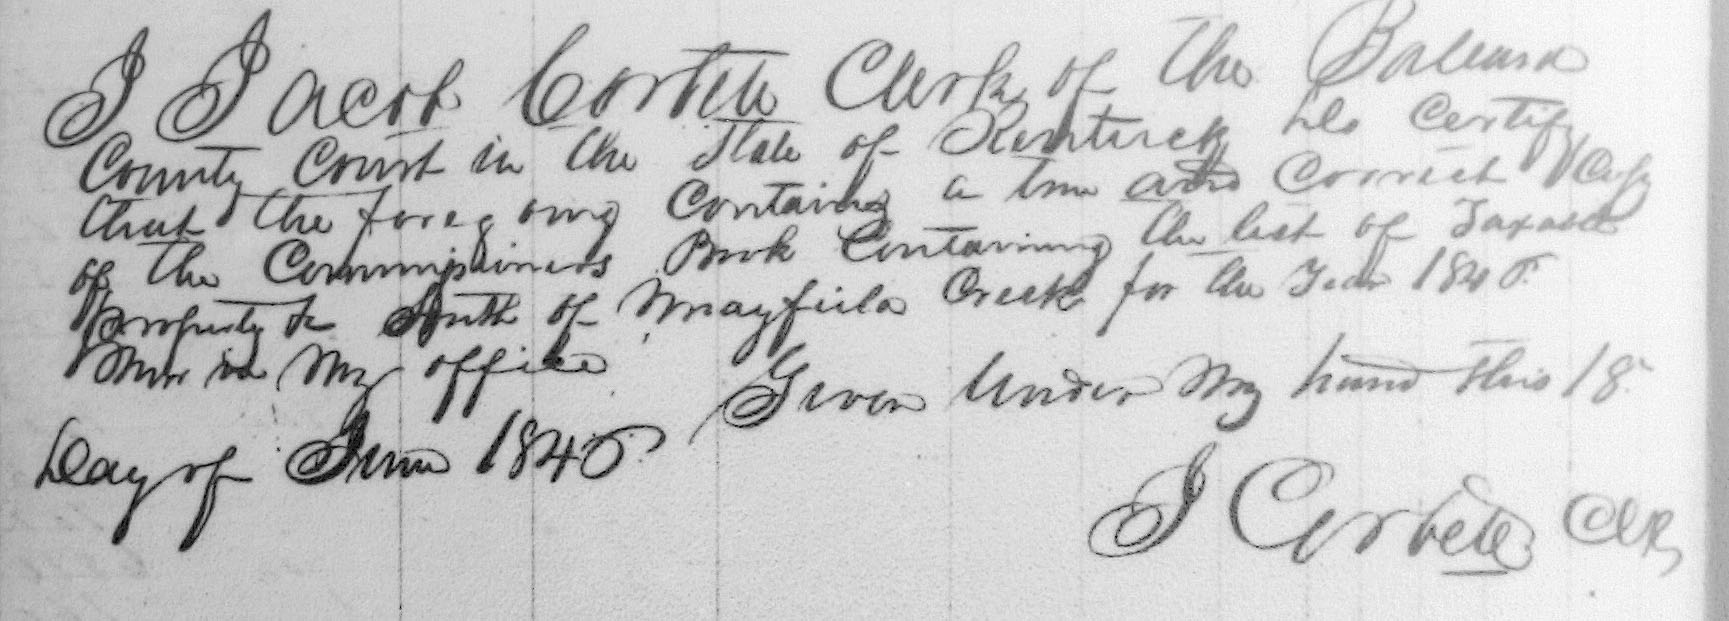 I Jacob Corbett Clerk of the Ballard
County Court in the State of Kentucky do Certify
that the foregoing Contains a true and Correct Copy
of the Commissioners Book Containing the list of Taxable
property South of Mayfield Creek for the Year 1845
Now in My office Given Under My hand this 18
Day of June 1845
J Corbett Clk